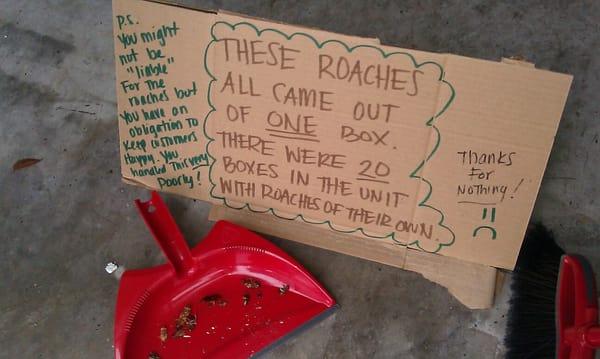 P.S.
You might
not be
"liable"
For the
roaches but
you have an
obligation to
keep customers
Happy. You
handled this very
Poorly!
THESE ROACHES
ALL CAME OUT
OF ONE BOX.
THERE WERE 20
BOXES IN THE UNIT
WITH ROACHES OF THEIR OWN.
Thanks
For
NOTHING!
=(